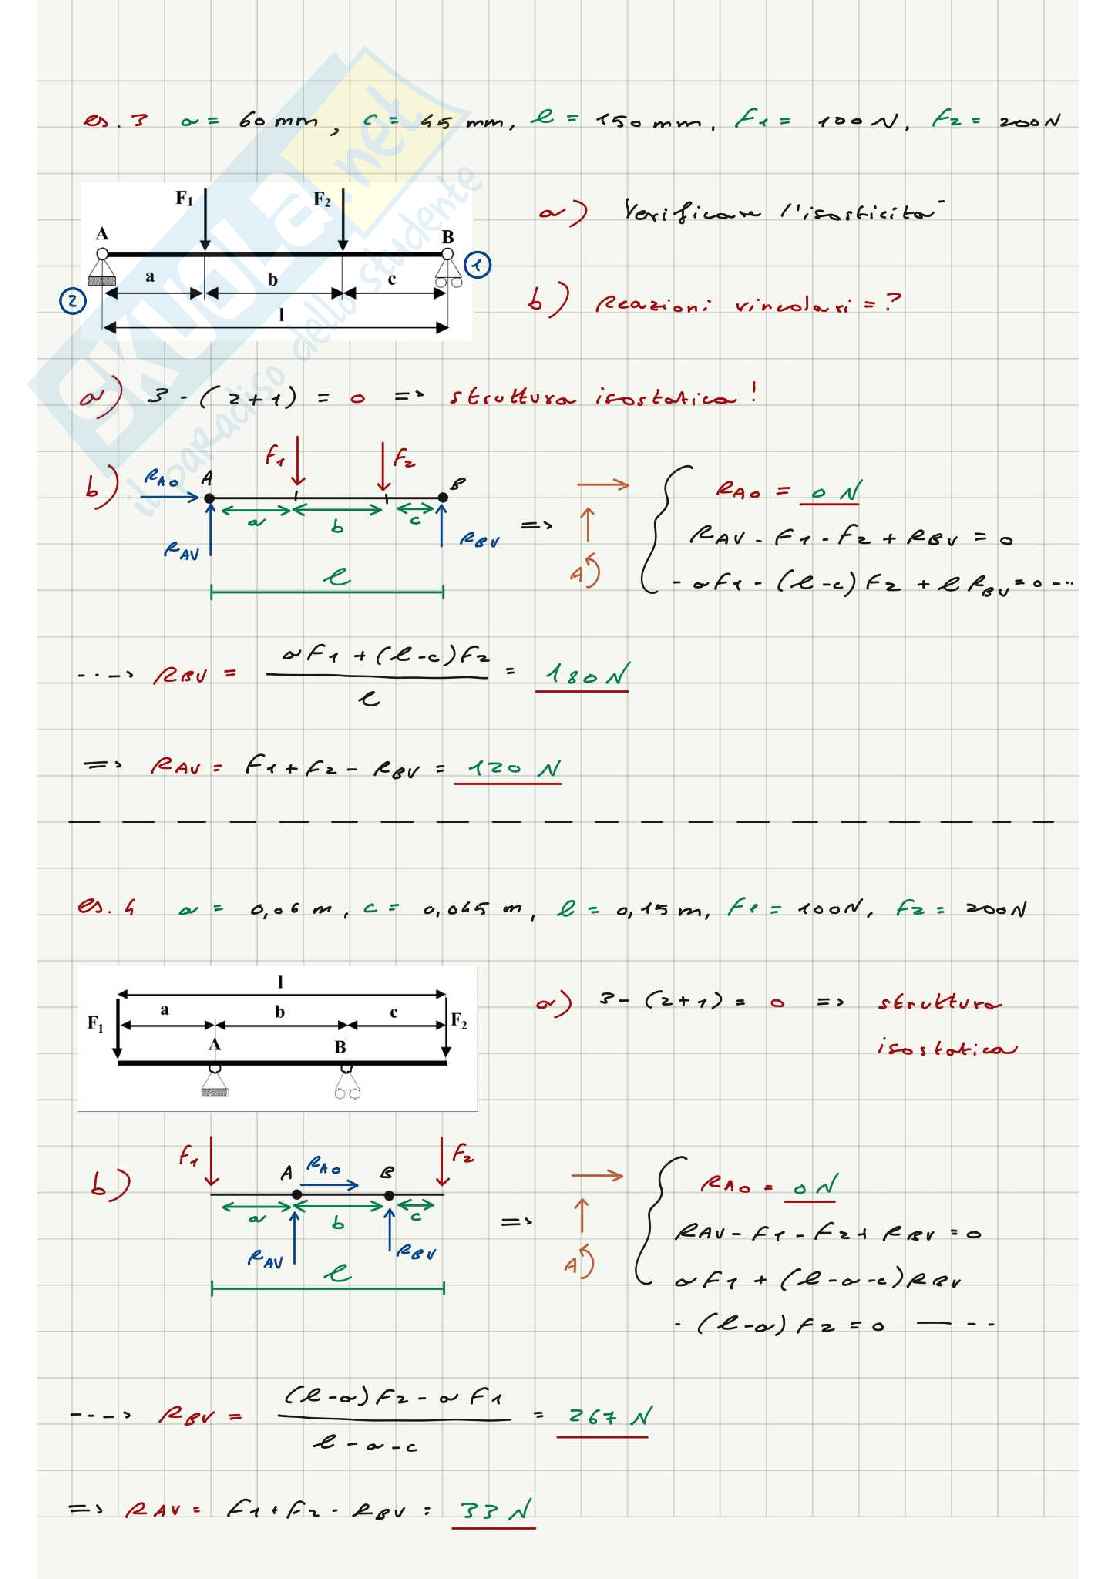 es. 3 a = 60 mm, c = 45 mm, l = 150 mm, F1 = 100 N, F2 = 200 N
F1 F2
A B
a b c
l
2 1
a) Verificare l'isosticità
b) Reazioni vincolari = ?
a) 3 - (2+1) = 0 => struttura isostatica!
b) RAO A F1 F2 B
a b c
RAV RBV
l
=> A)
RAO = 0 N
RAV - F1 - F2 + RBV = 0
- aF1 - (l-c) F2 + l RBV = 0 ---
---> RBV = aF1 + (l-c)F2 / l = 180 N
=> RAV = F1 + F2 - RBV = 120 N
es. 4 a = 0,06 m, c = 0,045 m, l = 0,15 m, F1 = 100N, F2 = 200N
l
a b c
F1 F2
A B
a) 3 - (2+1) = 0 => struttura
isostatica
b) F1 A RAO B F2
a b c
RAV RBV
l
=> A)
RAO = 0 N
RAV - F1 - F2 + RBV = 0
aF1 + (l-a-c) RBV
- (l-a) F2 = 0 ---
---> RBV = (l-a) F2 - a F1 / l-a-c = 267 N
=> RAV = F1 + F2 - RBV = 33 N
SKUOLA.net
il paradiso dello studente